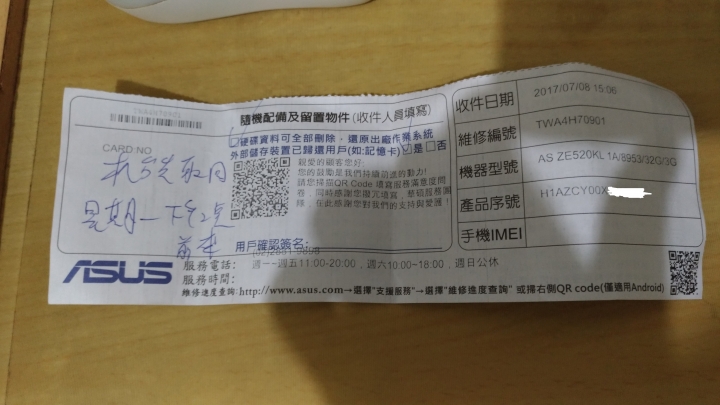 TWA4H70901
CARD NO
隨機配備及留置物件(收件人員填寫)
硬碟資料可全部刪除，還原出廠作業系統
外部儲存裝置已歸還用戶(如:記憶卡)☑是□否
親愛的顧客您好:
您的鼓勵是我們持續前進的動力!
請您掃描QR Code 填寫服務滿意度問
卷，同時感謝您撥冗填寫，華碩服務團
隊，在此感謝您對我們的支持與愛護!
星期一下午
用戶確認簽名:
ASUS
服務電話:
服務時間:
週一~週五11:00-20:00，週六10:00~18:00，週日公休
維修進度查詢:http://www.asus.com→選擇"支援服務"→選擇"維修進度查詢" 或掃右側QR code(僅適用Android)
收件日期 2017/07/08 15:06
維修編號 TWA4H70901
機器型號 AS ZE520KL 1A/8953/32G/3G
產品序號 H1AZCY00X
手機IMEI